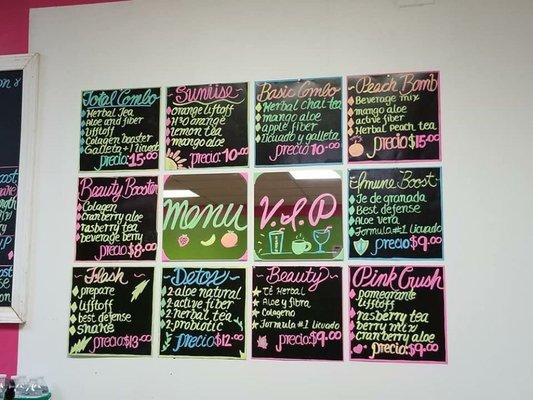 Total Combo
Herbal Tea
Aloe and fiber
Lifftoff
Colagen booster
Galleta + 1 Licuado
precio: 15.00
Sunrise
orange liftoff
N30 orange
lemon tea
mango aloe
precio: 10.00
Basic Combo
Herbal chai tea
mango aloe
apple fiber
Licuado y galleta
precio 10.00
Peach Bomb
Beverage mix
mango aloe
active fiber
Herbal peach tea
precio: $15.00
Beauty Booster
Colagen
cranberry aloe
rasberry tea
beverage berry
precio: $8.00
Menu
V.I.P
Imune Boost
Te de granada
Best defense
Aloe vera
Formula #1 Licuado
precio: $9.00
Flash
prepare
liftoff
best defense
shake
precio: $13.00
Detox
2 aloe natural
2 active fiber
2 herbal tea
2 probiotic
precio: $12.00
Beauty
Té Herbal
Aloe y fibra
Colageno
Formula #1 Licuado
precio: $9.00
Pink Crush
pomegranate
liftoff
rasberry tea
berry mix
cranberry aloe
precio: $9.00